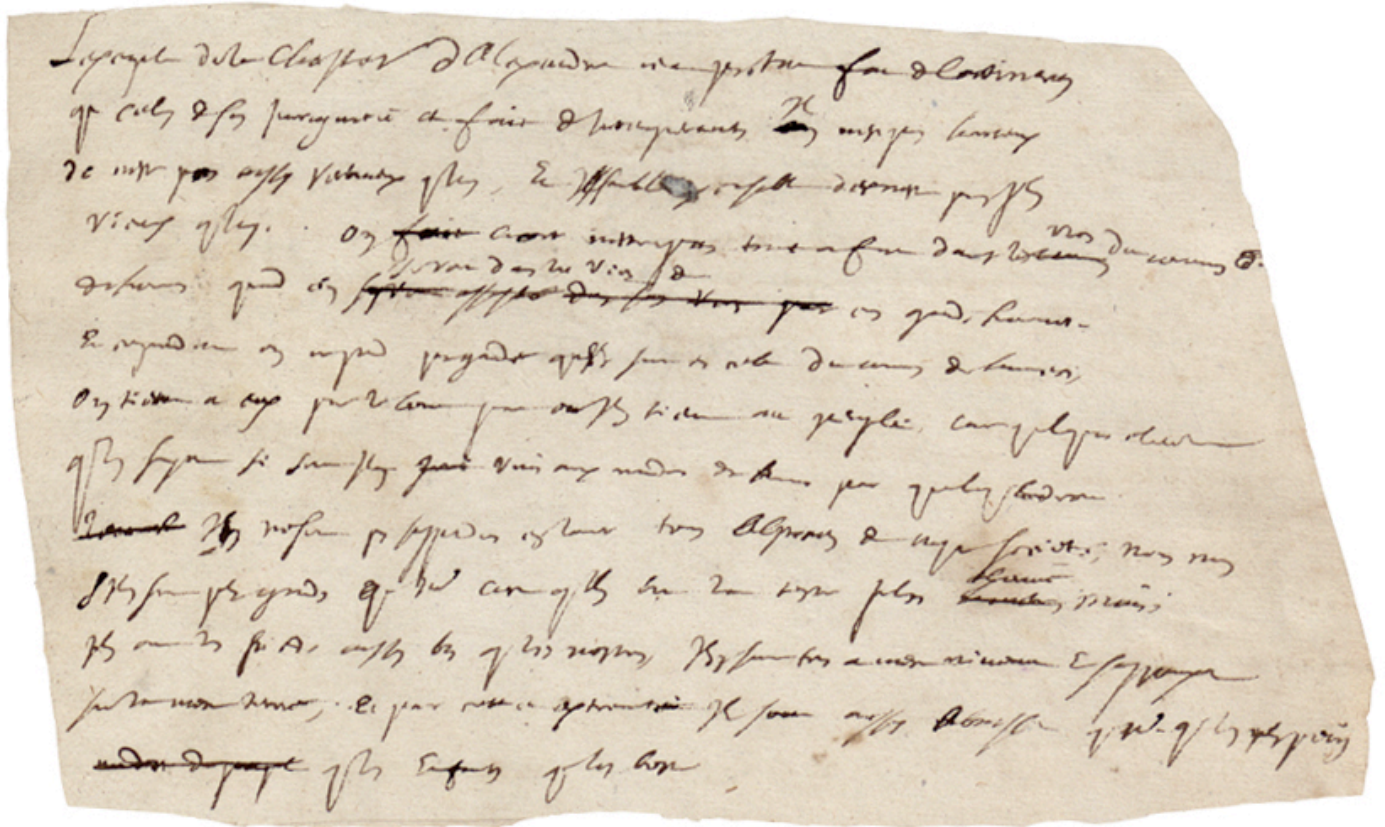 L'exemple de la Chasteté d'Alexandre n'a pas tant fait de continens
que celuy de son yvrognerie a fait d'intemperants Il n'est pas honteux
de n'estre pas aussy vertueux que luy, Et Il semble excusable de n'estre pas plus
vicieux que luy. On croit n'estre pas tout a fait dans les vices du commun
des hommes quand on se voit dans les vices de ces grands hommes.
Et cependant on ne prend pas garde qu'ils sont en cela du commun des hommes,
On tient a eux par le bout par où ils tiennent au peuple, car quelque elevez
qu'ils soyent si sont ils unis aux moindres des hommes par quelque endroit
Ils ne sont pas suspendus en l'air tous abstraits de nostre société, non non
s'ils sont plus grands que nous c'est qu'ils ont la teste plus elevée mais
ils ont les pieds aussy bas que les nostres, Ils y sont tous a mesme niveau Et s'appuyent
sur la mesme terre, Et par cette extremité Ils sont aussy abaissez que nous que les plus petits
que les Enfants que les bestes